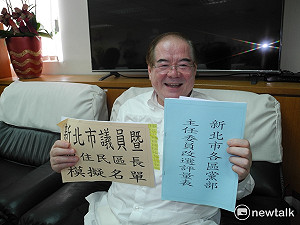 新北市議員暨
住民區長
模擬名單
新北市各區黨部
主任委員改選評量表
newtalk